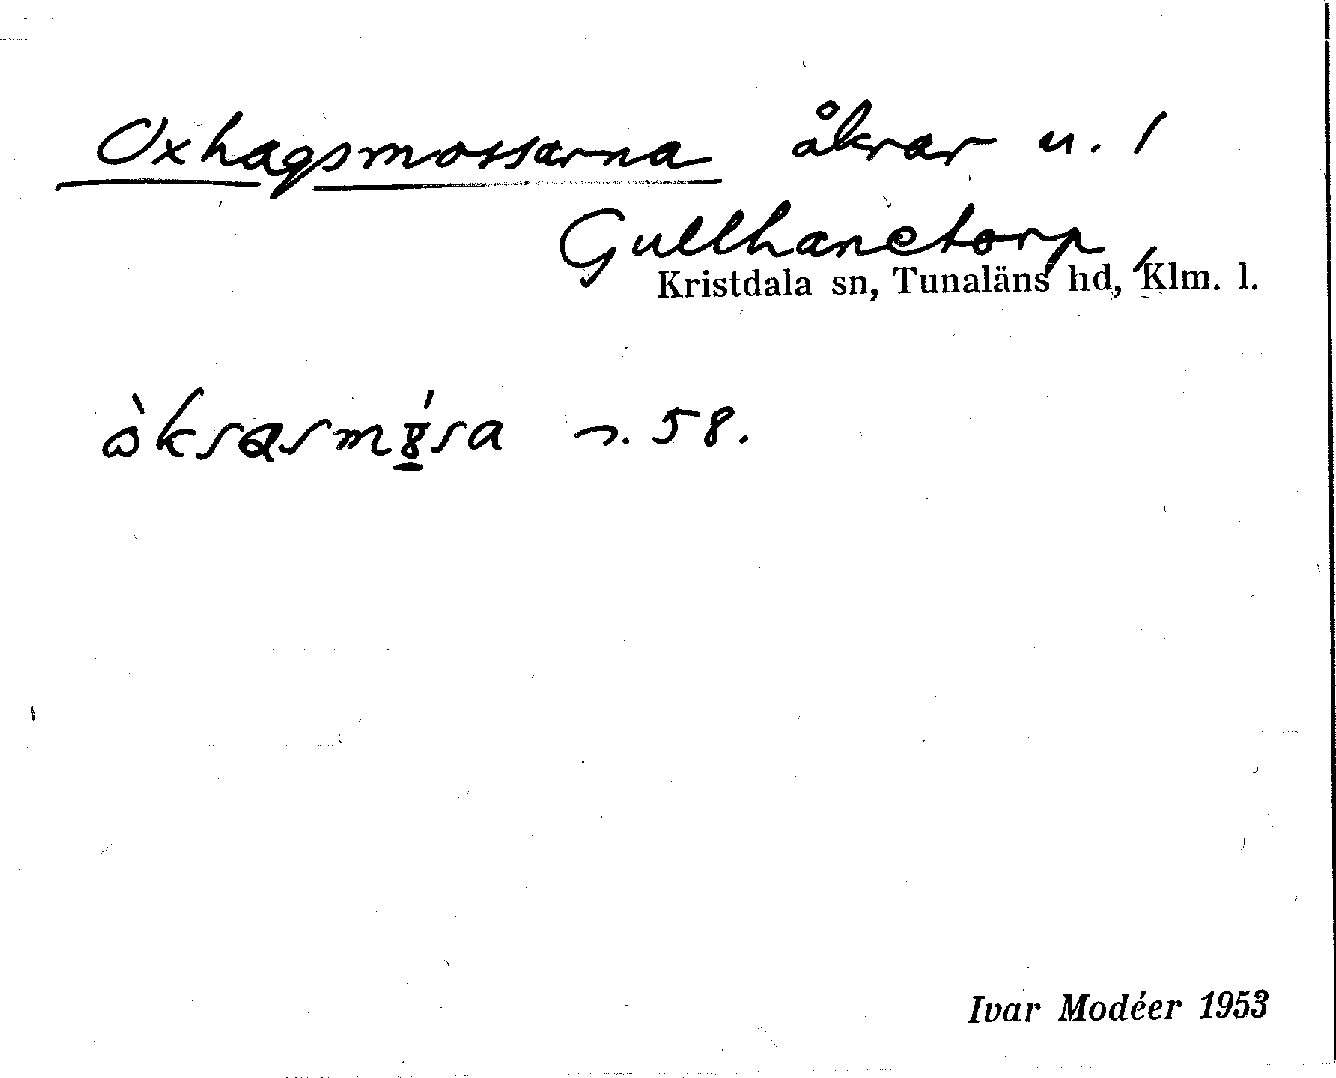 Oxhagsmossarna åkrar u. 1
Gullhanetorp,
Kristdala sn, Tunaläns hd, Klm. l.
58.
Ivar Modéer 1953